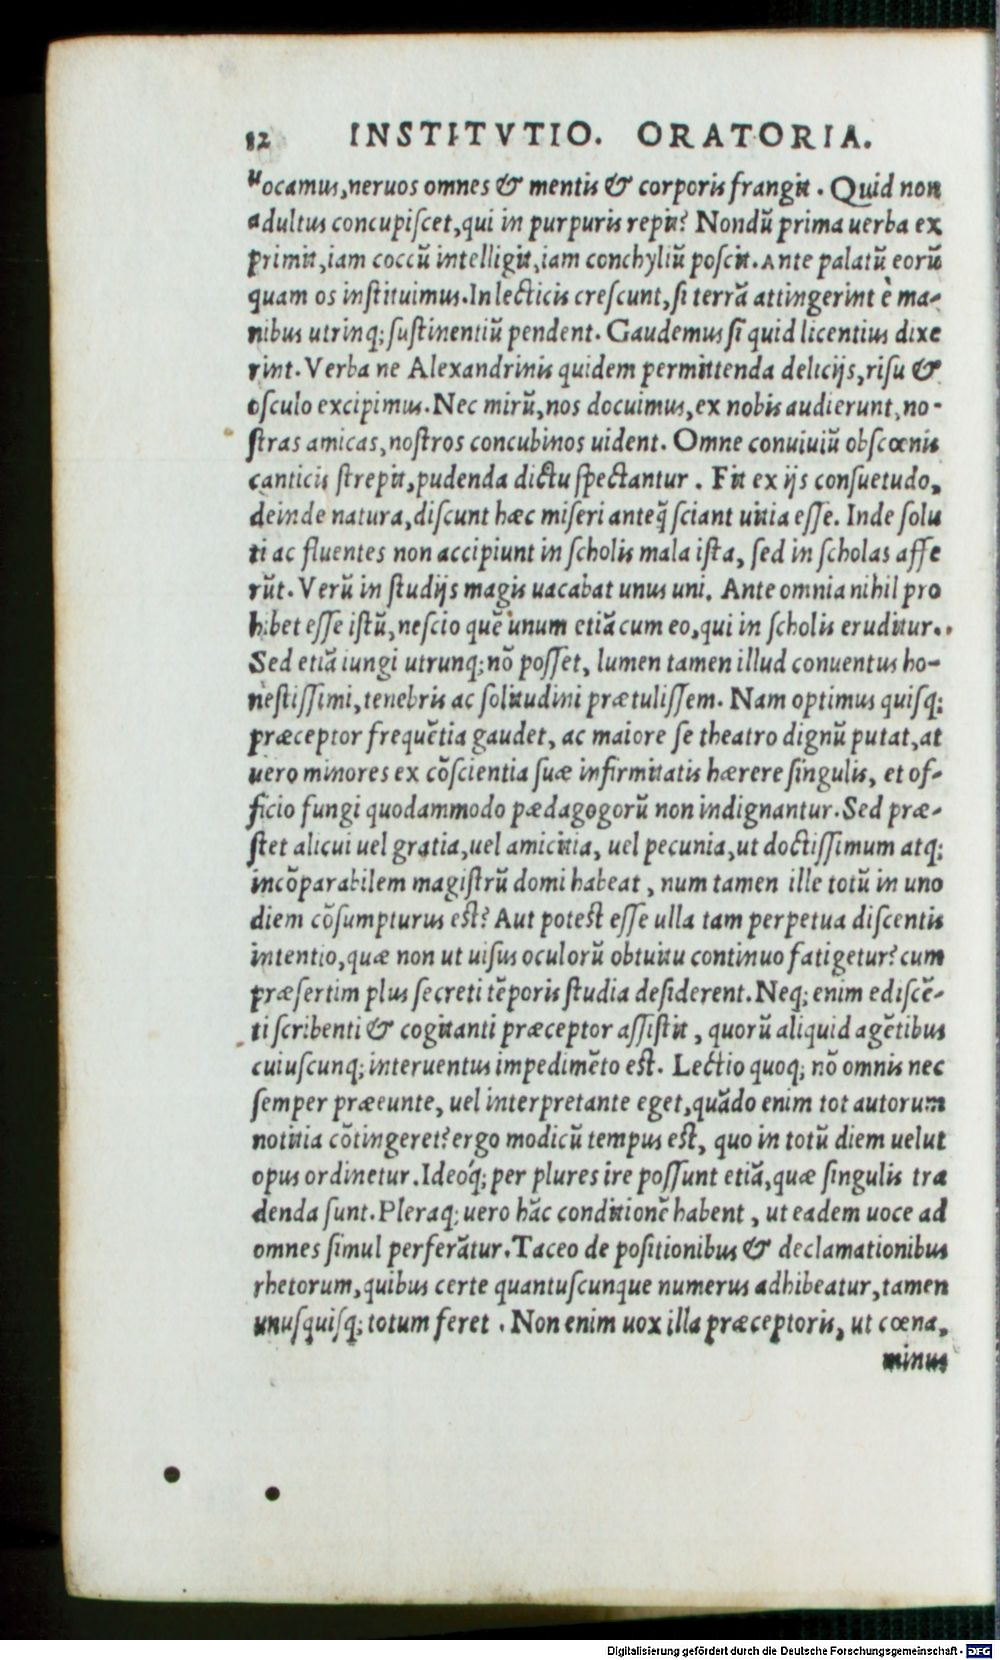 12 INSTITVTIO. ORATORIA.
uocamus, neruos omnes & mentis & corporis frangit. Quid non
adultus concupiſcet, qui in purpuris repit? Nondū prima uerba ex
primit, iam coccū intelligit, iam conchyliū poſcit. Ante palatū eorū
quam os inſtituimus. In lecticis creſcunt, ſi terrā attingerint è ma-
nibus utrinq; ſuſtinentiū pendent. Gaudemus ſi quid licentius dixe
rint. Verba ne Alexandrinis quidem permittenda delicijs, riſu &
oſculo excipimus. Nec mirū, nos docuimus, ex nobis audierunt, no-
ſtras amicas, noſtros concubinos uident. Omne conuiuiū obſcœnis
canticis ſtrepit, pudenda dictu ſpectantur. Fit ex ijs conſuetudo,
deinde natura, diſcunt hæc miſeri anteq̄ ſciant uitia eſſe. Inde ſolu
ti ac fluentes non accipiunt in ſcholis mala iſta, ſed in ſcholas affe
rūt. Verū in ſtudijs magis uacabat unus uni. Ante omnia nihil pro
hibet eſſe iſtū, neſcio quē unum etiā cum eo, qui in ſcholis eruditur.
Sed etiā iungi utrunq; nō poſſet, lumen tamen illud conuentus ho-
neſtiſſimi, tenebris ac ſolitudini prætuliſſem. Nam optimus quiſq;
præceptor frequētia gaudet, ac maiore ſe theatro dignū putat, at
uero minores ex cōſcientia ſuæ infirmitatis hærere ſingulis, et of-
ficio fungi quodammodo pædagogorū non indignantur. Sed præ-
ſtet alicui uel gratia, uel amicitia, uel pecunia, ut doctiſſimum atq;
incōparabilem magiſtrū domi habeat, num tamen ille totū in uno
diem cōſumpturus eſt? Aut poteſt eſſe ulla tam perpetua diſcentis
intentio, quæ non ut uiſus oculorū obtuitu continuo fatigetur? cum
præſertim plus ſecreti tēporis ſtudia deſiderent. Neq; enim ediſcē-
ti ſcribenti & cogitanti præceptor aſſiſtit, quorū aliquid agētibus
cuiuſcunq; interuentus impedimēto eſt. Lectio quoq; nō omnis nec
ſemper præeunte, uel interpretante eget, quādo enim tot autorum
notitia cōtingeret? ergo modicū tempus eſt, quo in totū diem uelut
opus ordinetur. Ideoq́; per plures ire poſſunt etiā, quæ ſingulis tra
denda ſunt. Pleraq; uero hāc conditionē habent, ut eadem uoce ad
omnes ſimul perferātur. Taceo de poſitionibus & declamationibus
rhetorum, quibus certe quantuſcunque numerus adhibeatur, tamen
unuſquiſq; totum feret. Non enim uox illa præceptoris, ut cœna,
minus
Digitalisierung gefördert durch die Deutsche Forschungsgemeinschaft - DFG